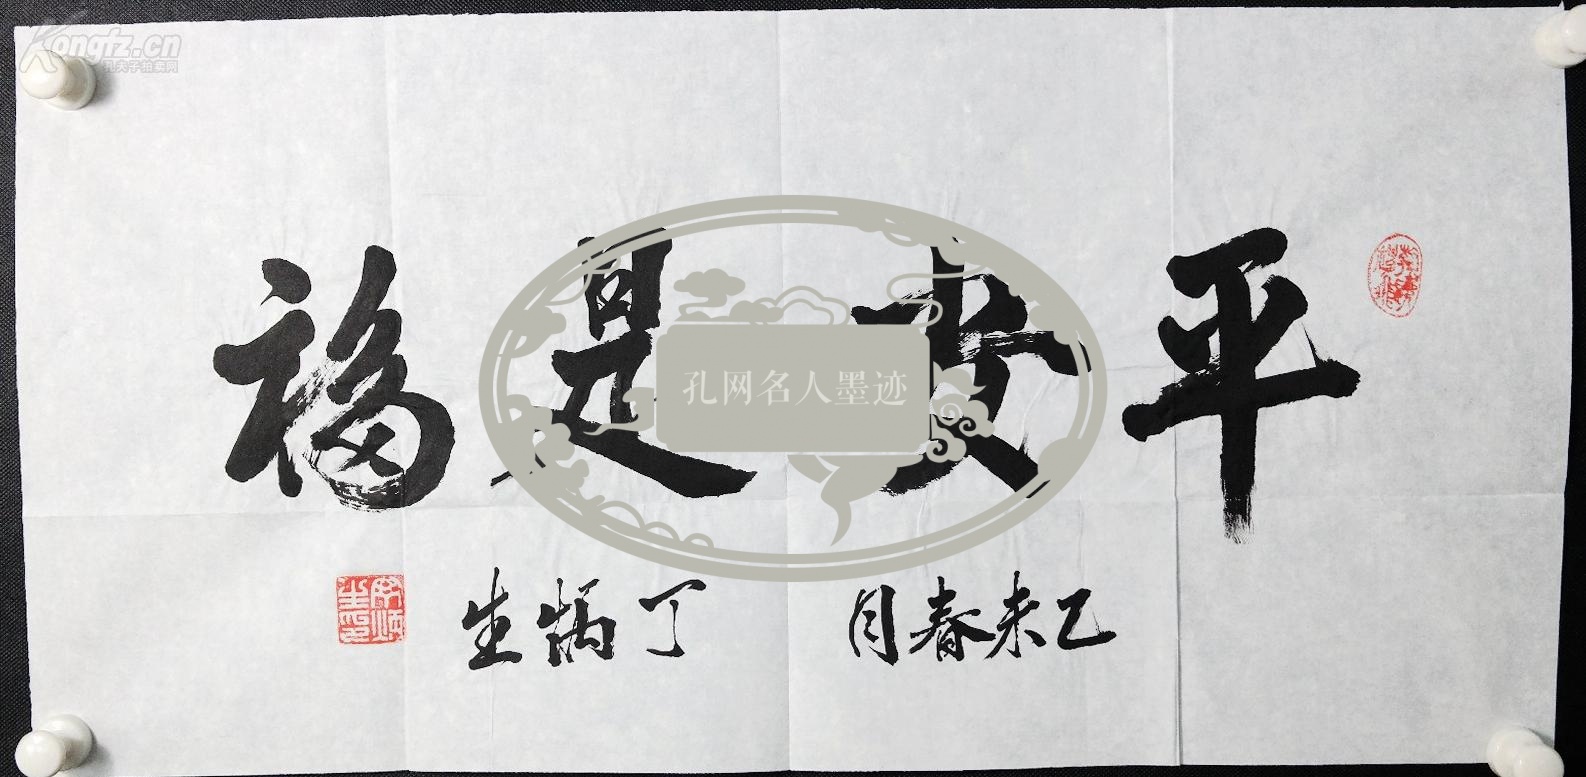 Kongfz.cn
孔夫子拍卖网
平安是福
孔网名人墨迹
乙未春月
丁炳生